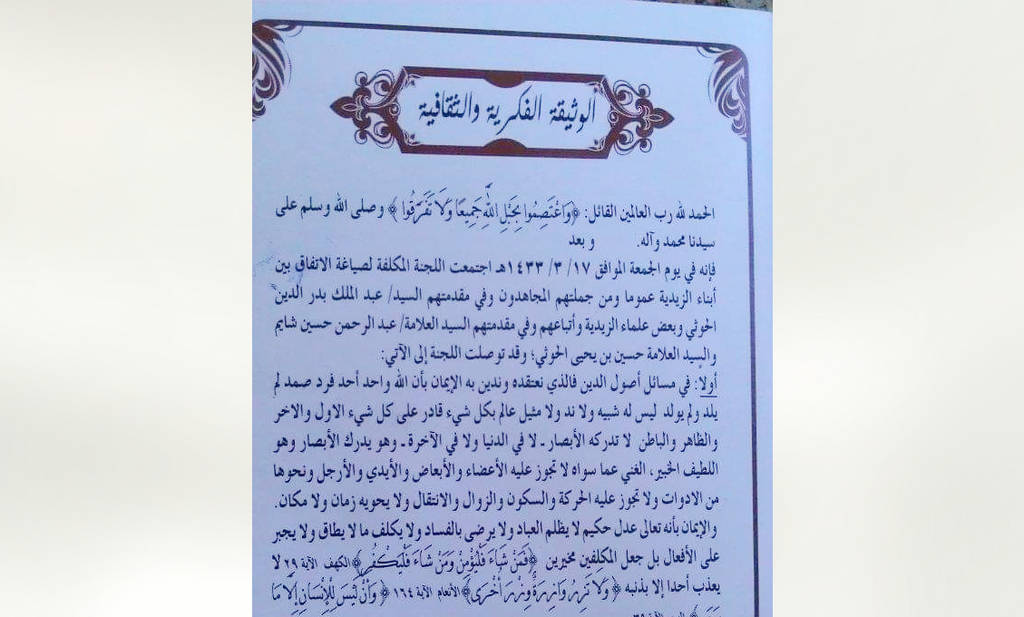 الوثيقة الفكرية والثقافية
الحمد لله رب العالمين القائل: ﴿وَاعْتَصِمُوا بِحَبْلِ اللَّهِ جَمِيعًا وَلَا تَفَرَّقُوا﴾ وصلى الله وسلم على
سيدنا محمد وآله. و بعد
فإنه في يوم الجمعة الموافق ١٧/ ٣/ ١٤٣٣هـ اجتمعت اللجنة المكلفة لصياغة الاتفاق بين
أبناء الزيدية عموما ومن جملتهم المجاهدون وفي مقدمتهم السيد/ عبد الملك بدر الدين
الحوثي وبعض علماء الزيدية وأتباعهم وفي مقدمتهم السيد العلامة/ عبد الرحمن حسين شايم
والسيد العلامة حسين بن يحيى الحوثي؛ وقد توصلت اللجنة إلى الآتي:
أولا: في مسائل أصول الدين فالذي نعتقده وندين به الإيمان بأن الله واحد أحد فرد صمد لم
يلد ولم يولد ليس له شبيه ولا ند ولا مثيل عالم بكل شيء قادر على كل شيء الاول والاخر
والظاهر والباطن لا تدركه الأبصار ـ لا في الدنيا ولا في الآخرة ـ وهو يدرك الأبصار وهو
اللطيف الخبير، الغني عما سواه لا تجوز عليه الأعضاء والأبعاض والأيدي والأرجل ونحوها
من الادوات ولا تجوز عليه الحركة والسكون والزوال والانتقال ولا يحويه زمان ولا مكان.
والإيمان بأنه تعالى عدل حكيم لا يظلم العباد ولا يرضى بالفساد ولا يكلف ما لا يطاق ولا يجبر
على الأفعال بل جعل المكلفين مخيرين ﴿فَمَنْ شَاءَ فَلْيُؤْمِنْ وَمَنْ شَاءَ فَلْيَكْفُرْ﴾ الكهف الآية ٢٩ لا
يعذب أحدا إلا بذنبه ﴿وَلَا تَزِرُ وَازِرَةٌ وِزْرَ أُخْرَى﴾ الأنعام الآية ١٦٤ ﴿وَأَنْ لَيْسَ لِلْإِنْسَانِ إِلَّا مَا